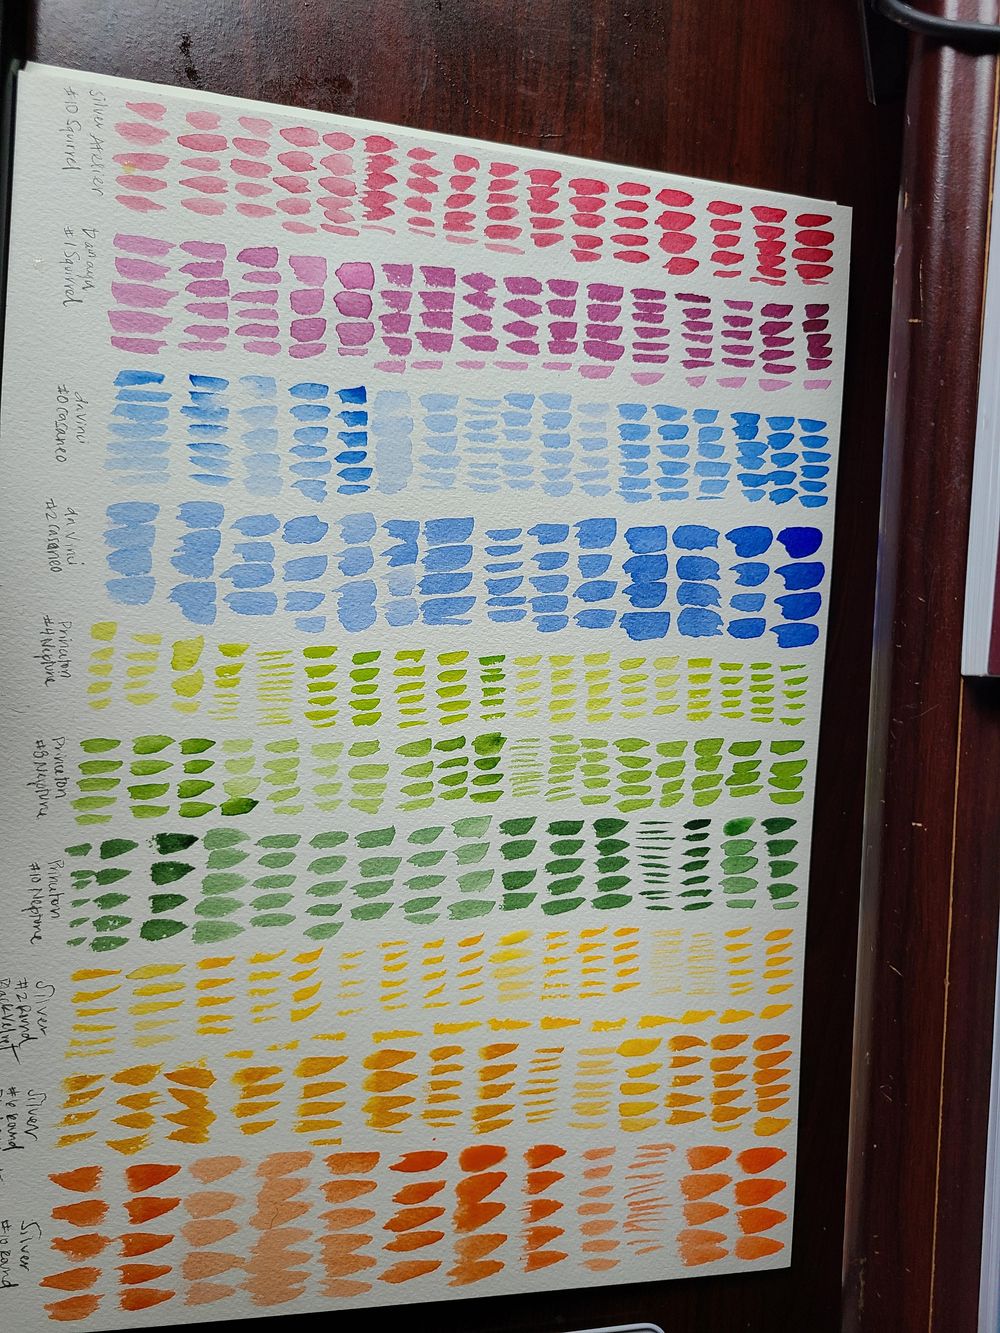 Silver Atelier
#10 Squirrel
#1 Squirrel
da Vinci
#0 Casaneo
da Vinci
#2 Casaneo
Princeton
#4 Neptune
Princeton
#8 Neptune
Princeton
#10 Neptune
Silver
#2 Round
Black Velvet
Silver
#6 Round
Silver
#10 Round